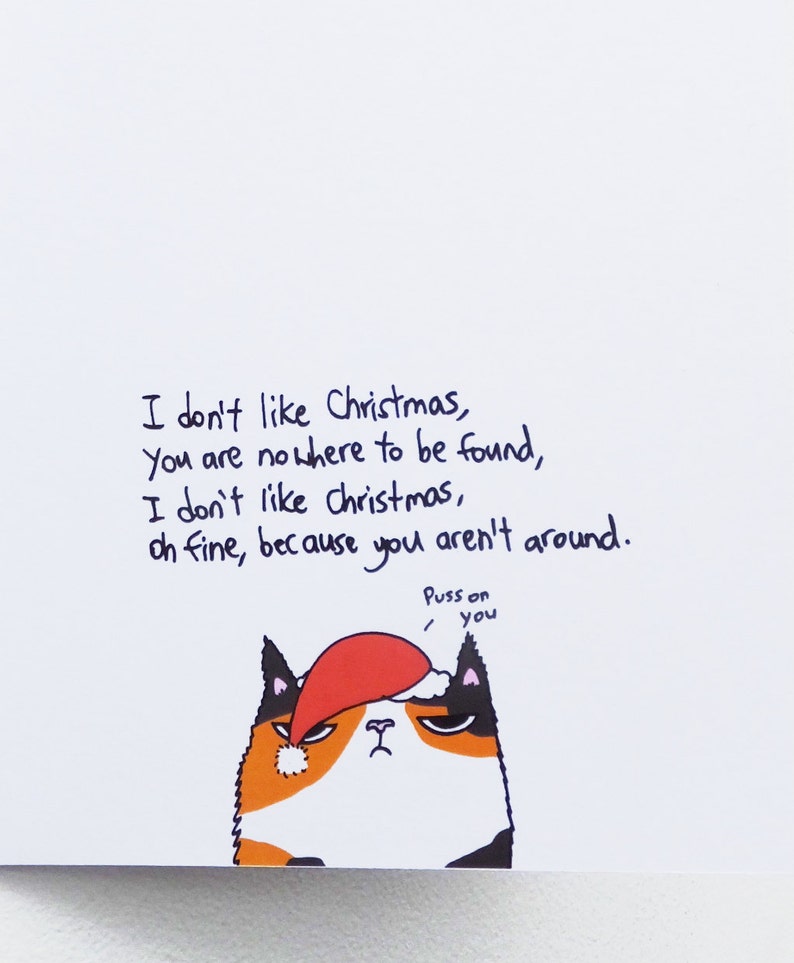 I don't like Christmas,
You are nowhere to be found,
I don't like Christmas,
oh fine, because you aren't around.
Puss on
you